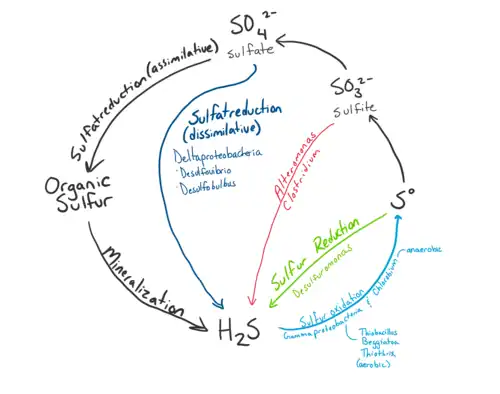 SO₄²⁻
sulfate
SO₃²⁻
sulfite
S⁰
H₂S
Organic
Sulfur
Sulfatreduction (assimilative)
Mineralization
Sulfatreduction
(dissimilative)
Deltaproteobacteria
·Desulfovibrio
·Desulfobulbus
Alteromonas
Clostridium
Sulfur Reduction
Desulfuromonas
Sulfur oxidation
Gammaproteobacteria & Chlorobium
anaerobic
Thiobacillus
Beggiatoa
Thiothrix
(aerobic)